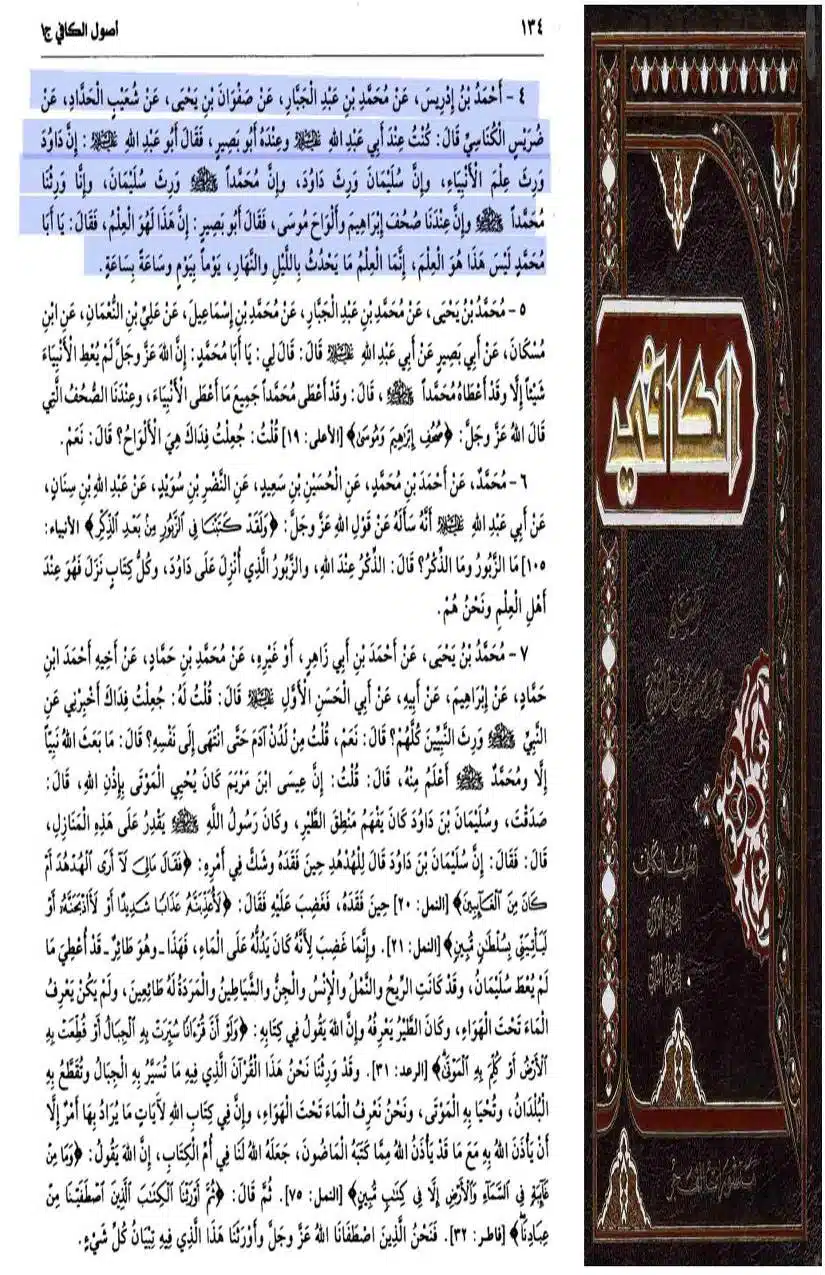 ١٣٤
أصول الكافي ج١
٤ - أَحْمَدُ بْنُ إِدْرِيسَ، عَنْ مُحَمَّدِ بْنِ عَبْدِ الْجَبَّارِ، عَنْ صَفْوَانَ بْنِ يَحْيَى، عَنْ شُعَيْبٍ الْحَدَّادِ، عَنْ
ضُرَيْسٍ الْكُنَاسِيِّ قَالَ: كُنْتُ عِنْدَ أَبِي عَبْدِ اللهِ عليه السلام وعِنْدَهُ أَبُو بَصِيرٍ، فَقَالَ أَبُو عَبْدِ اللهِ عليه السلام: إِنَّ دَاوُدَ
وَرِثَ عِلْمَ الْأَنْبِيَاءِ، وإِنَّ سُلَيْمَانَ وَرِثَ دَاوُدَ، وإِنَّ مُحَمَّداً ﷺ وَرِثَ سُلَيْمَانَ، وإِنَّا وَرِثْنَا
مُحَمَّداً ﷺ وإِنَّ عِنْدَنَا صُحُفَ إِبْرَاهِيمَ وأَلْوَاحَ مُوسَى، فَقَالَ أَبُو بَصِيرٍ: إِنَّ هَذَا لَهُوَ الْعِلْمُ، فَقَالَ: يَا أَبَا
مُحَمَّدٍ لَيْسَ هَذَا هُوَ الْعِلْمَ، إِنَّمَا الْعِلْمُ مَا يَحْدُثُ بِاللَّيْلِ والنَّهَارِ، يَوْماً بِيَوْمٍ وسَاعَةً بِسَاعَةٍ.
٥ - مُحَمَّدُ بْنُ يَحْيَى، عَنْ مُحَمَّدِ بْنِ عَبْدِ الْجَبَّارِ، عَنْ مُحَمَّدِ بْنِ إِسْمَاعِيلَ، عَنْ عَلِيِّ بْنِ النُّعْمَانِ، عَنِ ابْنِ
مُسْكَانَ، عَنْ أَبِي بَصِيرٍ عَنْ أَبِي عَبْدِ اللهِ عليه السلام قَالَ: قَالَ لِي: يَا أَبَا مُحَمَّدٍ: إِنَّ اللهَ عَزَّ وجَلَّ لَمْ يُعْطِ الْأَنْبِيَاءَ
شَيْئاً إِلَّا وقَدْ أَعْطَاهُ مُحَمَّداً ﷺ، قَالَ: وقَدْ أَعْطَى مُحَمَّداً جَمِيعَ مَا أَعْطَى الْأَنْبِيَاءَ، وعِنْدَنَا الصُّحُفُ الَّتِي
قَالَ اللهُ عَزَّ وجَلَّ: ﴿صُحُفِ إِبْرَاهِيمَ وَمُوسَى﴾ [الأعلى: ١٩] قُلْتُ: جُعِلْتُ فِدَاكَ هِيَ الْأَلْوَاحُ؟ قَالَ: نَعَمْ.
٦ - مُحَمَّدٌ، عَنْ أَحْمَدَ بْنِ مُحَمَّدٍ، عَنِ الْحُسَيْنِ بْنِ سَعِيدٍ، عَنِ النَّضْرِ بْنِ سُوَيْدٍ، عَنْ عَبْدِ اللهِ بْنِ سِنَانٍ،
عَنْ أَبِي عَبْدِ اللهِ عليه السلام أَنَّهُ سَأَلَهُ عَنْ قَوْلِ اللهِ عَزَّ وجَلَّ: ﴿وَلَقَدْ كَتَبْنَا فِي الزَّبُورِ مِنْ بَعْدِ الذِّكْرِ﴾ الأنبياء:
١٠٥] مَا الزَّبُورُ ومَا الذِّكْرُ؟ قَالَ: الذِّكْرُ عِنْدَ اللهِ، والزَّبُورُ الَّذِي أُنْزِلَ عَلَى دَاوُدَ، وكُلُّ كِتَابٍ نَزَلَ فَهُوَ عِنْدَ
أَهْلِ الْعِلْمِ ونَحْنُ هُمْ.
٧ - مُحَمَّدُ بْنُ يَحْيَى، عَنْ أَحْمَدَ بْنِ أَبِي زَاهِرٍ، أَوْ غَيْرِهِ، عَنْ مُحَمَّدِ بْنِ حَمَّادٍ، عَنْ أَخِيهِ أَحْمَدَ ابْنِ
حَمَّادٍ، عَنْ إِبْرَاهِيمَ، عَنْ أَبِيهِ، عَنْ أَبِي الْحَسَنِ الْأَوَّلِ عليه السلام قَالَ: قُلْتُ لَهُ: جُعِلْتُ فِدَاكَ أَخْبِرْنِي عَنِ
النَّبِيِّ ﷺ وَرِثَ النَّبِيِّينَ كُلَّهُمْ؟ قَالَ: نَعَمْ، قُلْتُ مِنْ لَدُنْ آدَمَ حَتَّى انْتَهَى إِلَى نَفْسِهِ؟ قَالَ: مَا بَعَثَ اللهُ نَبِيّاً
إِلَّا ومُحَمَّدٌ ﷺ أَعْلَمُ مِنْهُ، قَالَ: قُلْتُ: إِنَّ عِيسَى ابْنَ مَرْيَمَ كَانَ يُحْيِي الْمَوْتَى بِإِذْنِ اللهِ، قَالَ:
صَدَقْتَ، وسُلَيْمَانَ بْنَ دَاوُدَ كَانَ يَفْهَمُ مَنْطِقَ الطَّيْرِ، وكَانَ رَسُولُ اللَّهِ ﷺ يَقْدِرُ عَلَى هَذِهِ الْمَنَازِلِ،
قَالَ: فَقَالَ: إِنَّ سُلَيْمَانَ بْنَ دَاوُدَ قَالَ لِلْهُدْهُدِ حِينَ فَقَدَهُ وشَكَّ فِي أَمْرِهِ: ﴿فَقَالَ مَالِيَ لَا أَرَى الْهُدْهُدَ أَمْ
كَانَ مِنَ الْغَائِبِينَ﴾ [النمل: ٢٠] حِينَ فَقَدَهُ، فَغَضِبَ عَلَيْهِ فَقَالَ: ﴿لَأُعَذِّبَنَّهُ عَذَابًا شَدِيدًا أَوْ لَأَاذْبَحَنَّهُ أَوْ
لَيَأْتِيَنِّي بِسُلْطَانٍ مُبِينٍ﴾ [النمل: ٢١]. وإِنَّمَا غَضِبَ لِأَنَّهُ كَانَ يَدُلُّهُ عَلَى الْمَاءِ، فَهَذَا - وهُوَ طَائِرٌ - قَدْ أُعْطِيَ مَا
لَمْ يُعْطَ سُلَيْمَانُ، وقَدْ كَانَتِ الرِّيحُ والنَّمْلُ والْإِنْسُ والْجِنُّ والشَّيَاطِينُ والْمَرَدَةُ لَهُ طَائِعِينَ، ولَمْ يَكُنْ يَعْرِفُ
الْمَاءَ تَحْتَ الْهَوَاءِ، وكَانَ الطَّيْرُ يَعْرِفُهُ وإِنَّ اللهَ يَقُولُ فِي كِتَابِهِ: ﴿وَلَوْ أَنَّ قُرْءَانًا سُيِّرَتْ بِهِ الْجِبَالُ أَوْ قُطِّعَتْ بِهِ
الْأَرْضُ أَوْ كُلِّمَ بِهِ الْمَوْتَى﴾ [الرعد: ٣١]. وقَدْ وَرِثْنَا نَحْنُ هَذَا الْقُرْآنَ الَّذِي فِيهِ مَا تُسَيَّرُ بِهِ الْجِبَالُ وتُقَطَّعُ بِهِ
الْبُلْدَانُ، وتُحْيَا بِهِ الْمَوْتَى، ونَحْنُ نَعْرِفُ الْمَاءَ تَحْتَ الْهَوَاءِ، وإِنَّ فِي كِتَابِ اللهِ لَآيَاتٍ مَا يُرَادُ بِهَا أَمْرٌ إِلَّا
أَنْ يَأْذَنَ اللهُ بِهِ مَعَ مَا قَدْ يَأْذَنُ اللهُ مِمَّا كَتَبَهُ الْمَاضُونَ، جَعَلَهُ اللهُ لَنَا فِي أُمِّ الْكِتَابِ، إِنَّ اللهَ يَقُولُ: ﴿وَمَا مِنْ
غَائِبَةٍ فِي السَّمَاءِ وَالْأَرْضِ إِلَّا فِي كِتَابٍ مُبِينٍ﴾ [النمل: ٧٥]. ثُمَّ قَالَ: ﴿ثُمَّ أَوْرَثْنَا الْكِتَابَ الَّذِينَ اصْطَفَيْنَا مِنْ
عِبَادِنَا﴾ [فاطر: ٣٢]. فَنَحْنُ الَّذِينَ اصْطَفَانَا اللهُ عَزَّ وجَلَّ وأَوْرَثَنَا هَذَا الَّذِي فِيهِ تِبْيَانُ كُلِّ شَيْءٍ.
الكافي